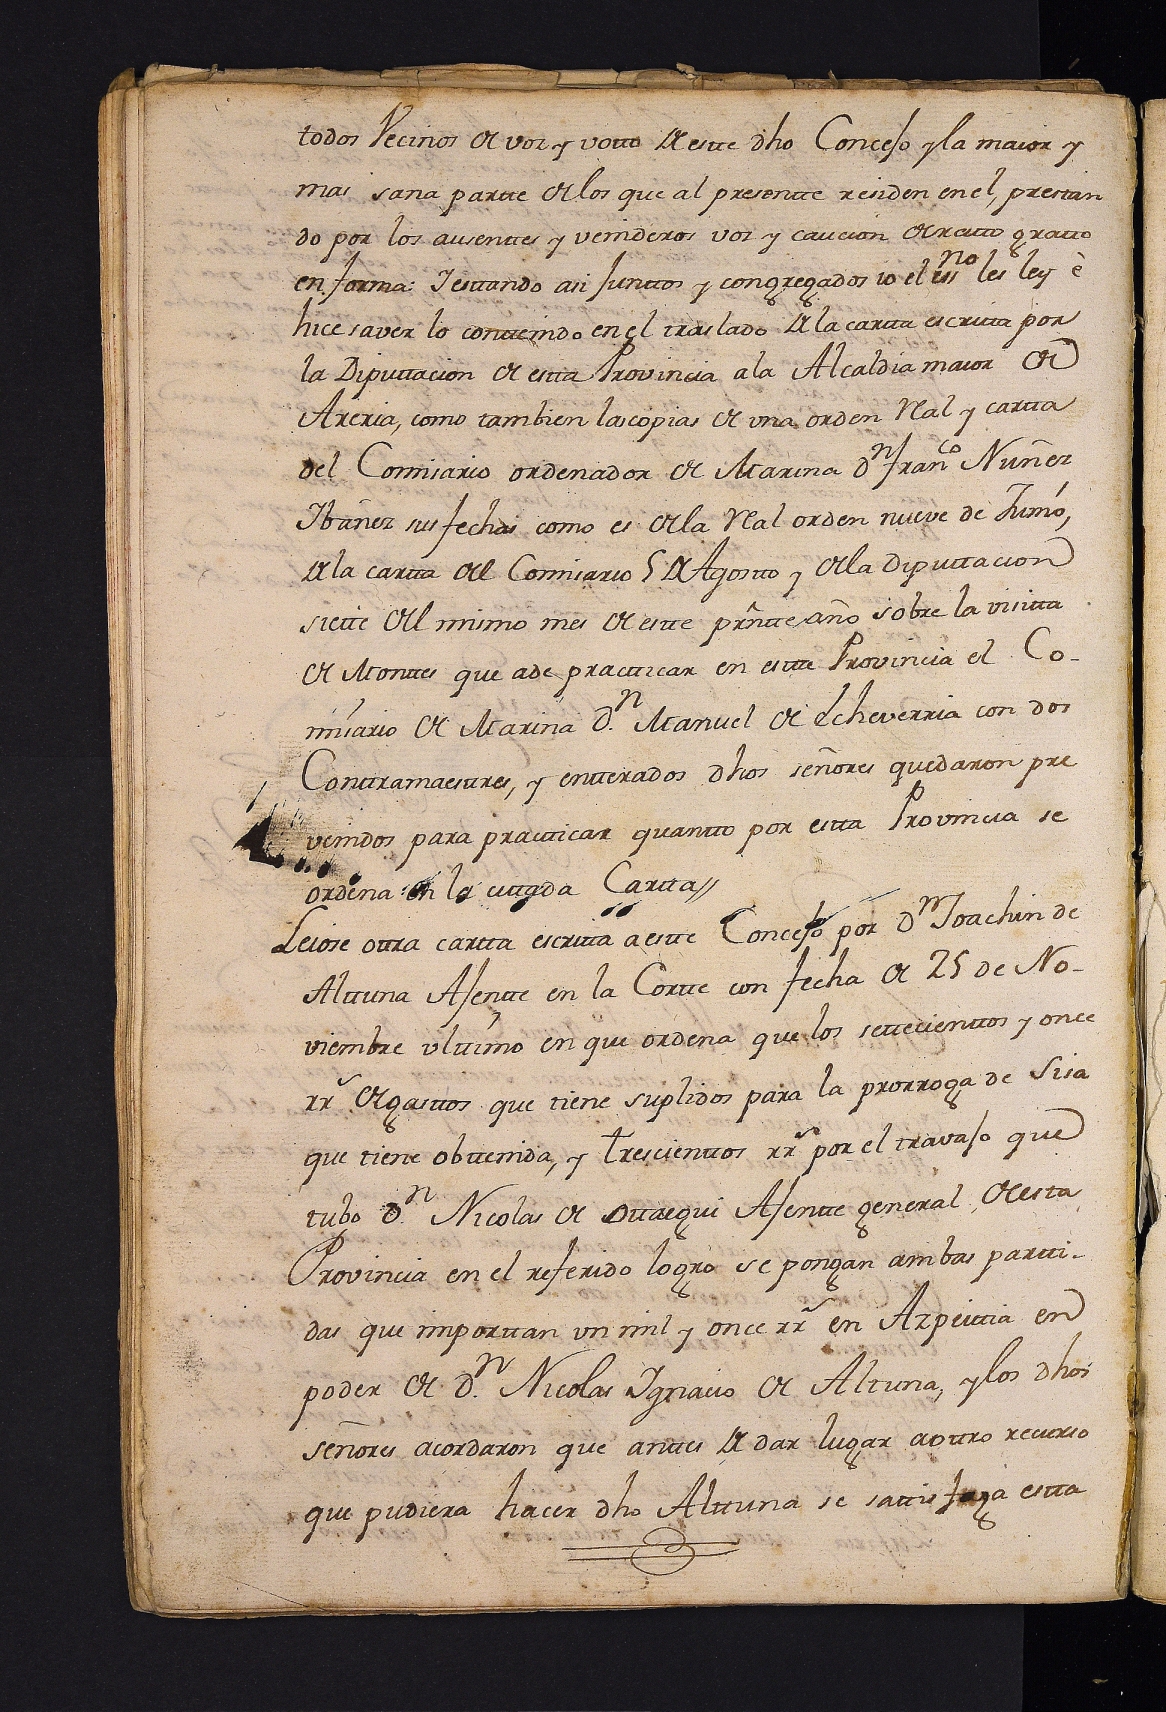 todos Vecinos de voz y votto de estte dho Concejo y la maior y
mas sana partte de los que al presentte residen en el, prestan
do por los ausenttes y venideros voz y caucion de ratto gratto
en forma: Iesttando asi junttos y congregados io el essno les ley è
hice saver lo conttenido en el traslado de la cartta escritta por
la Diputtacion de estta Provincia a la Alcaldia maior de
Areria, como tambien las copias de una orden Ral y cartta
del Comisario ordenador de Marina Dn Franco Nuñez
Ibañez sus fechas como es de la Ral orden nueve de Junió,
de la cartta del Comisario 5 de Agostto y de la Diputtacion
siette del mismo mes de estte prñtte año sobre la visitta
de Monttes que ade practticar en estta Provincia el Co-
misario de Marina Dn. Manuel de Echeverria con dos
Conttramaesttres, y entterados dhos señores quedaron pre
venidos para practticar quantto por estta Provincia se
ordena en la cittada Cartta//
Leiose ottra cartta escritta a estte Concejo por Dn Joachin de
Alttuna Ajentte en la Cortte con fecha de 25 de No-
viembre vlttimo en que ordena que los settecienttos y once
rrs de gasttos que tiene suplidos para la prorroga de Sisa
que tiene obttenida, y trescienttos rrs por el travajo que
tubo Dn. Nicolas de Ottaegui Ajentte general de esta
Provincia en el referido logro se pongan ambas partti-
das que importtan vn mil y once rrs en Azpeittia en
poder de Dn. Nicolas Ignacio de Altuna, y los dhos
señores acordaron que anttes de dar lugar a ottro recurso
que pudiera hacer dho Alttuna se sattisfaga estta